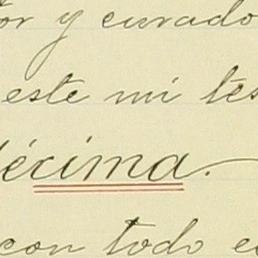 or y curado
este mi tes
décima.
con todo e